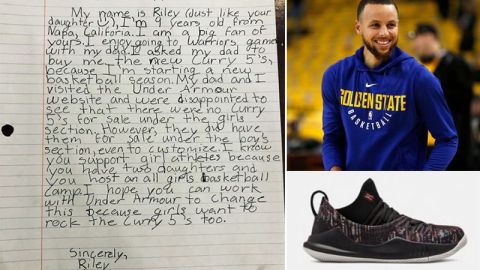 My name is Riley (Just like your
daughter), I'm 9 years old from
Napa, California. I am a big fan of
yours. I enjoy going to Warriors games
with my dad. I asked my dad to
buy me the new Curry 5's,
because I'm starting a new
basketball season. My dad and I
visited the Under Armour
website and were disappointed to
see that there were no Curry
5's for sale under the girls
section. However, they did have
them for sale under the boy's
section, even to customize. I know
you support girl athletes because
you have two daughters and
you host an all girls basketball
camp. I hope you can work
with Under Armour to change
this because girls want to
rock the Curry 5's too.
Sincerely,
Riley
GOLDEN STATE
BASKETBALL